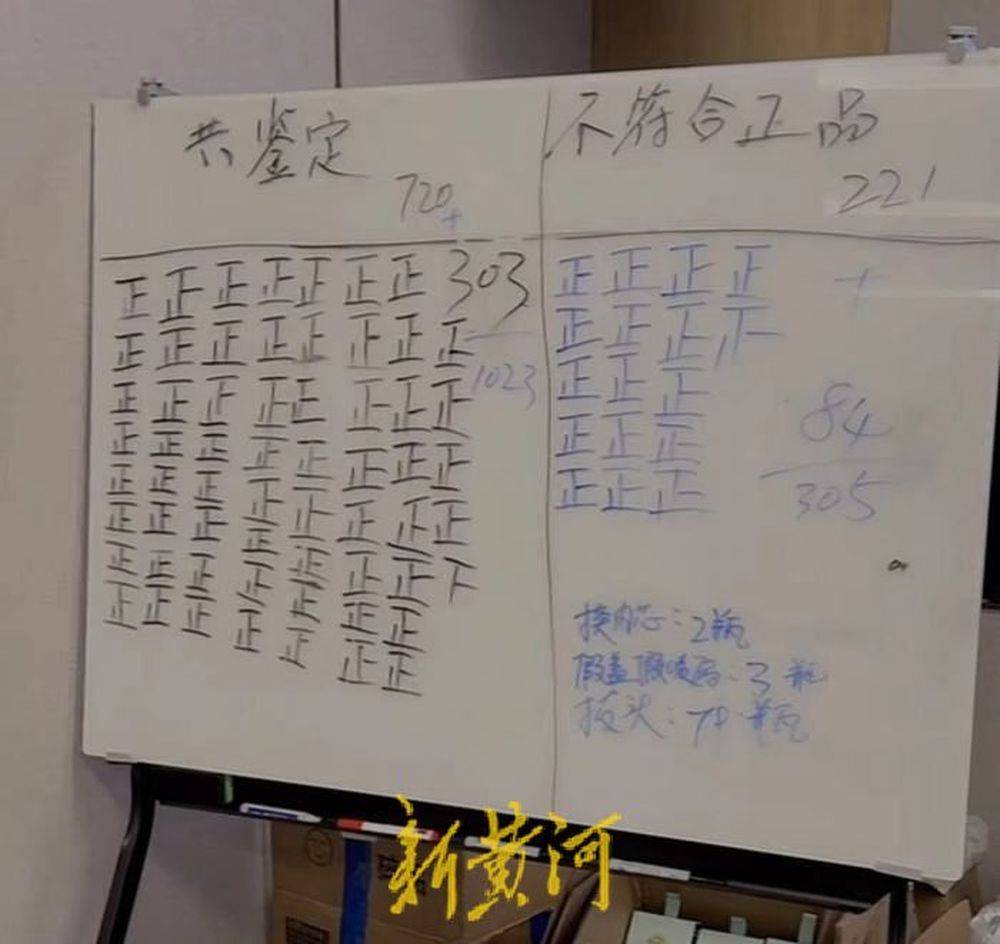 共鉴定
720
+
303
1023
正正正正正正正
正正正正正正正正
正正正正正正正正
正正正正正正正正
正正正正正正正正
正正正正正正正正
正正正正正正正下
正正正正正正正
正正
不符合正品
221
+
84
305
正正正正
正正正
正正正
正正正
正正正
换内芯:2瓶
假盖假喷码:3瓶
拔头:79瓶
新黄河